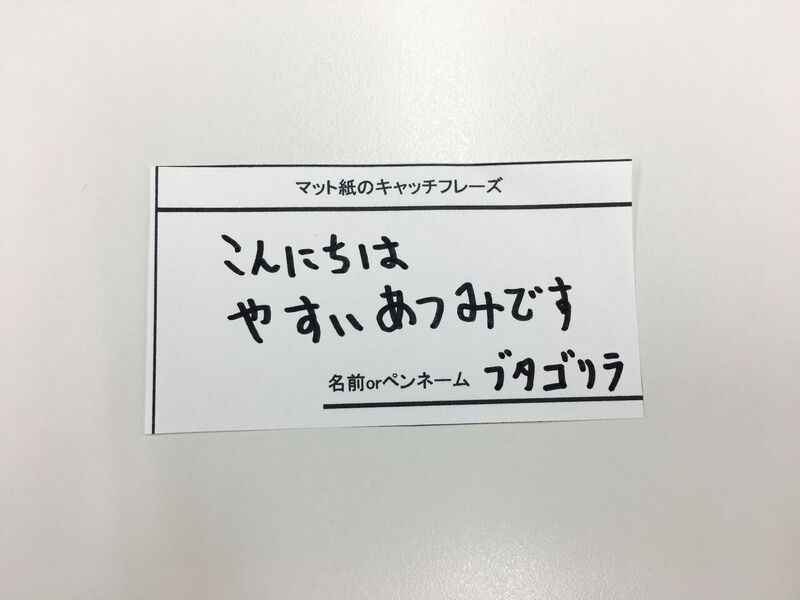 マット紙のキャッチフレーズ
こんにちは
やすいあつみです
名前orペンネーム ブタゴリラ